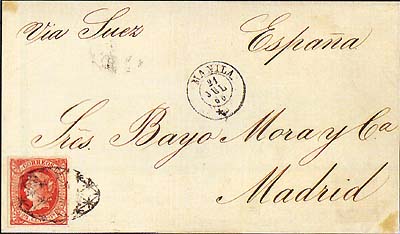 Via Suez
España
MANILA
21
JUL
Sres. Bayo Mora y Ca
Madrid
CORREOS